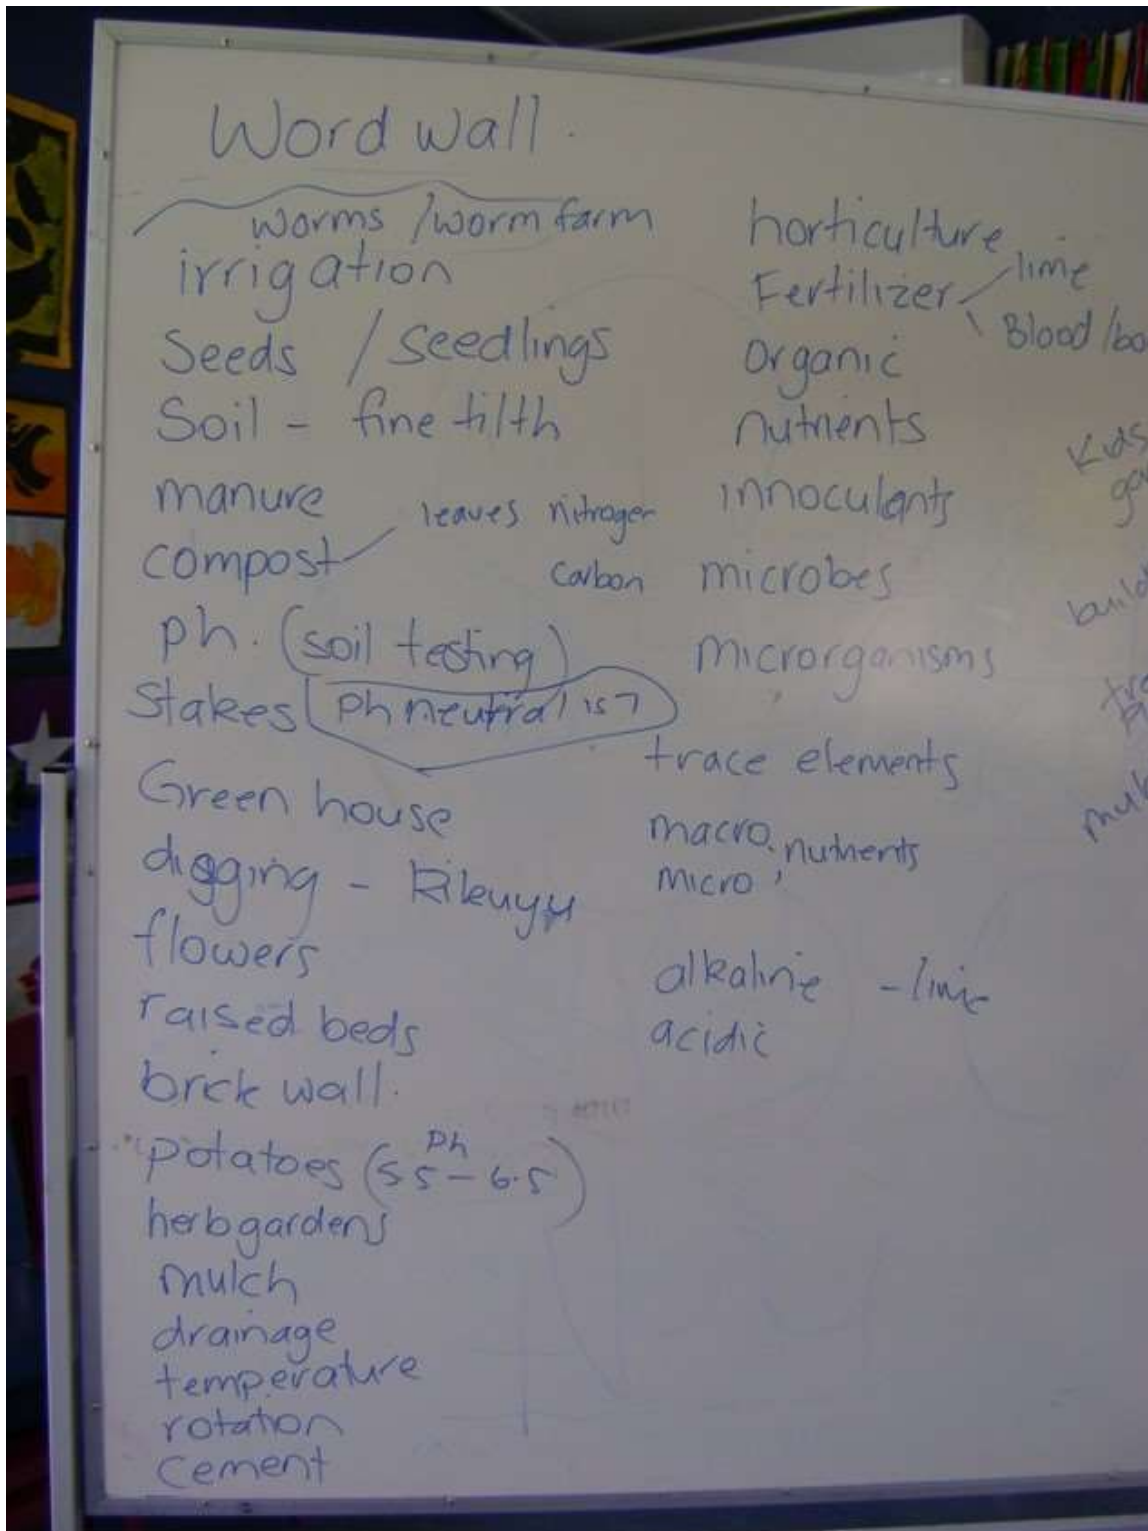 Word wall.
worms / worm farm
irrigation
Seeds / seedlings
Soil - fine tilth
manure
compost leaves nitrogen
carbon
ph. (soil testing)
Stakes ph neutral is 7
Green house
digging - Kikuyu
flowers
raised beds
brick wall.
potatoes (5.5 - 6.5)
Ph
herb gardens
mulch
drainage
temperature
rotation
cement
horticulture
Fertilizer lime
Blood /bo
organic
nutrients
innoculants
microbes
microrganisms
trace elements
macro. nutrients
micro
alkaline - lime
acidic
build